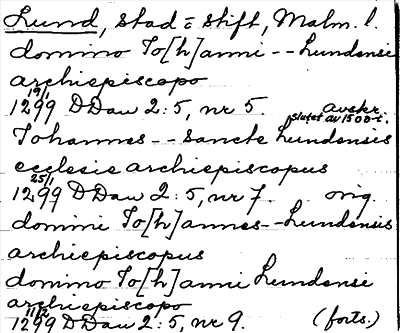 Lund, stad = stift, Malm. l.
domino Jo[h]anni -- Lundensi
archiepiscopo
19/1 1299 DDan 2:5, nr 5. avskr. slutet av 1500-t.
Johannes -- sancte Lundensis
ecclesie archiepiscopus
25/1 1299 DDan 2:5, nr 7. orig.
domini Jo[h]annes -- Lundensis
archiepiscopus
domino Jo[h]anni Lundensi
archiepiscopo
1299 DDan 2:5, nr 9. (forts.)